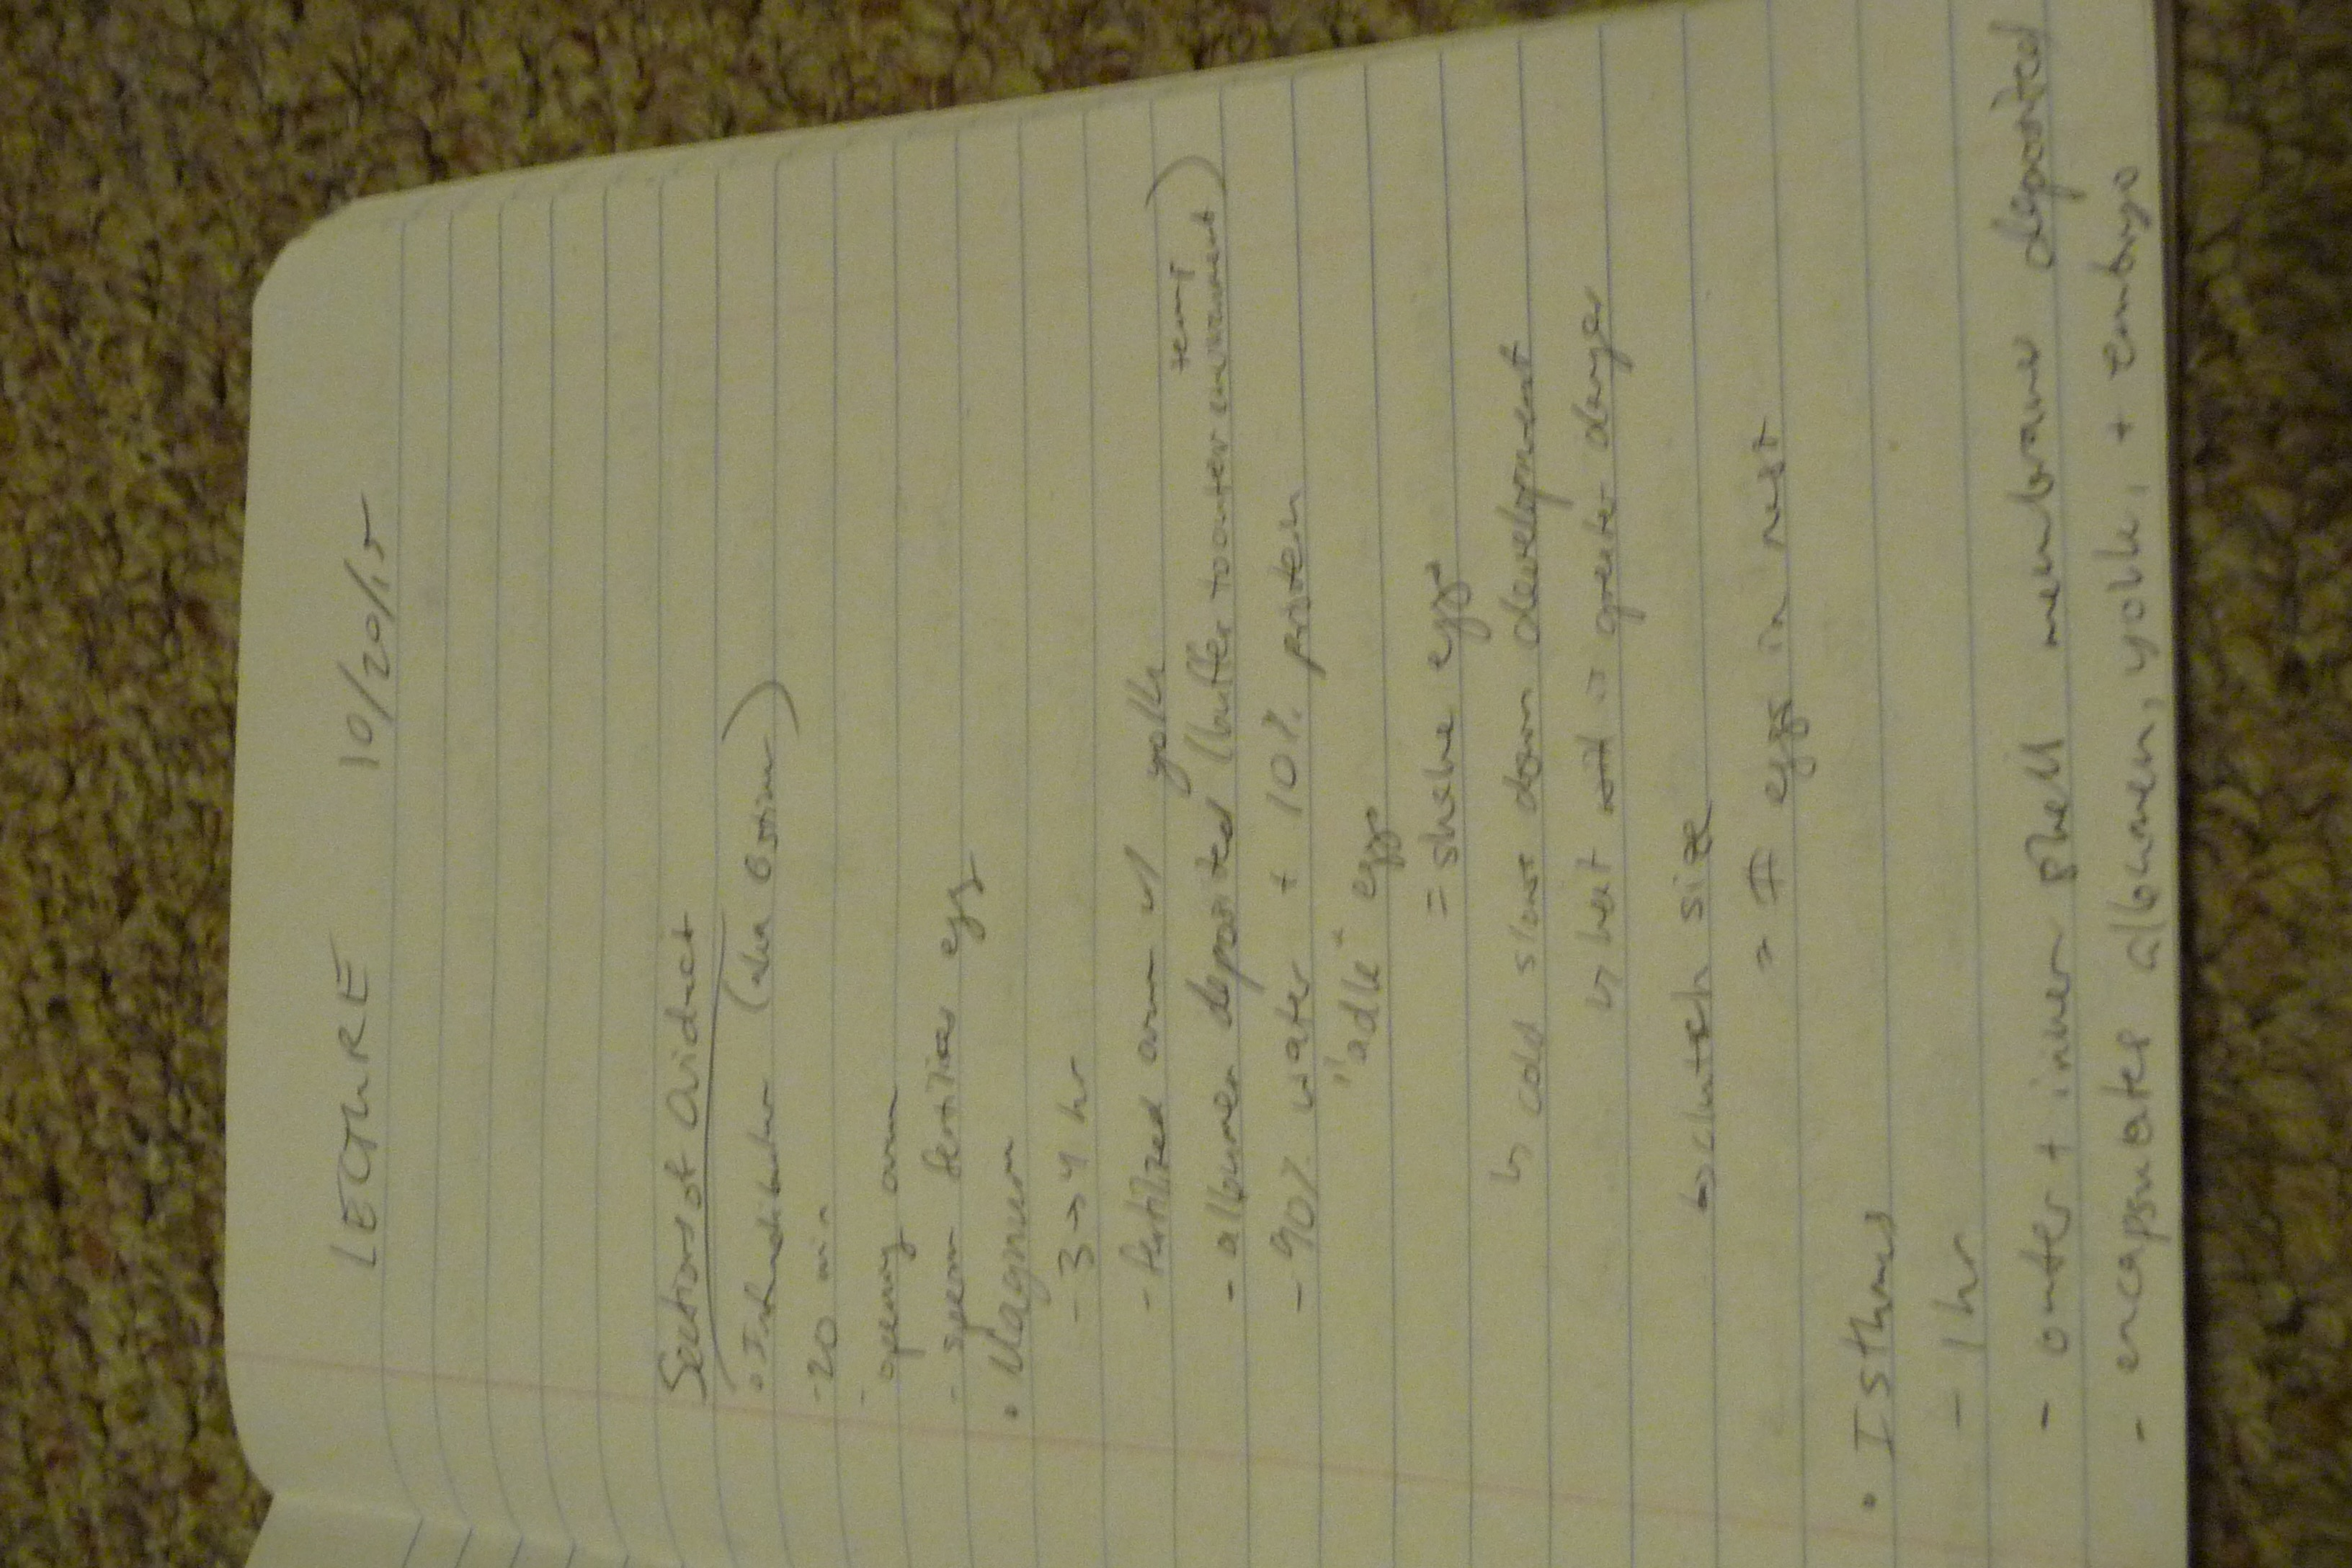 LECTURE 10/20/15
Sections of Oviduct
• Infundibulum (aka Ostium)
- 20 min
- opening ovum
- sperm fertilizes egg
• Magnum
- 3 → 4 hr
- fertilized ovum w/ yolk
- albumen deposited (buffer to outer environment)
temp
- 90% water + 10% protein
"adle" eggs
= shake eggs
↳ cold slows down development
↳ heat is greater danger
↳ clutch size
= # eggs in nest
• Isthmus
- 1 hr
- outer + inner shell membrane deposited
- encapsulates albumen, yolk, + embryo